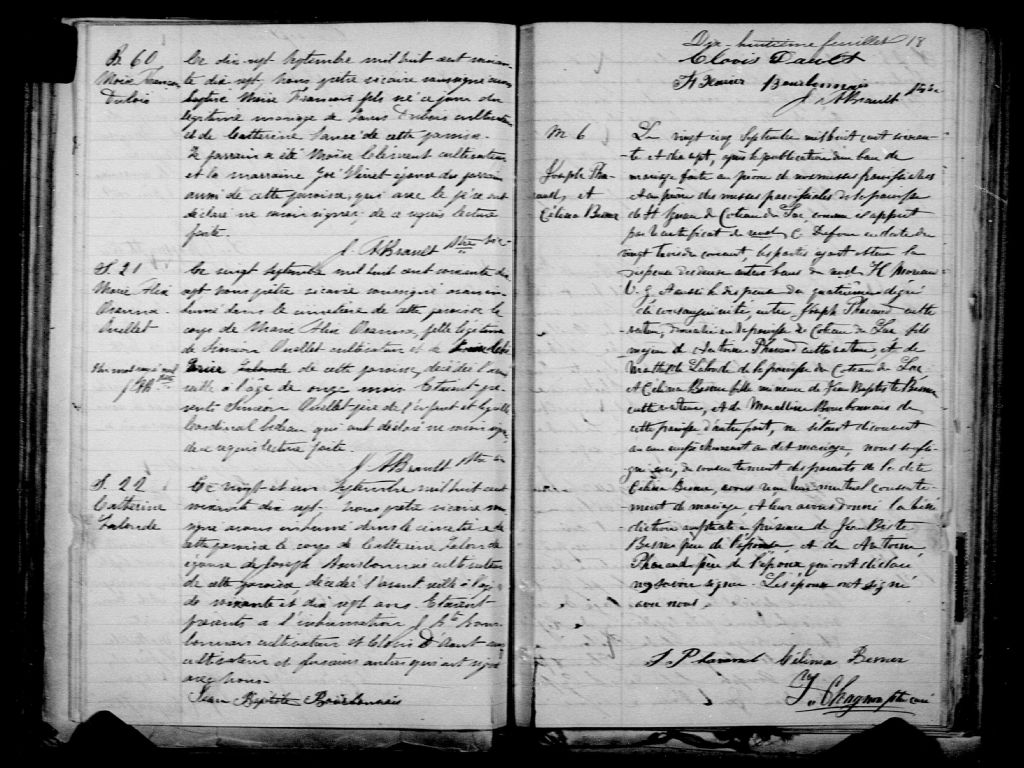 B 60
Moïse François
Dubois
Ce dix sept Septembre mil huit cent soixan-
te dix sept, Nous prêtre vicaire soussigné avons
baptisé Moïse François fils né ce jour du
légitime mariage de Louis Dubois cultivateur
et de Catherine de cette paroisse.
Le parrain a été Moïse Clément cultivateur
et la marraine Zoé Vinet épouse du parrain
aussi de cette paroisse, qui avec le père ont
déclaré ne savoir signer, de ce requis lecture
faite.
J. A Brault Ptre Vic
S. 21
Marie Alix
Osanna
Ouellet
Ce vingt Septembre mil huit cent soixante dix
sept nous prêtre vicaire soussigné avons in-
humé dans le cimetière de cette paroisse le
corps de Marie Alix Osanna, fille légitime
de Siméon Ouellet cultivateur et de
Lalonde de cette paroisse, décédée l'avant
veille à l'âge de onze mois. Etaient pré-
sents Siméon Ouellet père de l'enfant et
Cardinal bedeau qui ont déclaré ne savoir signer
de ce requis lecture faite.
J. A Brault Ptre Vic
S. 22
Catherine
Lalonde
Ce vingt et un Septembre mil huit cent
soixante dix sept, nous prêtre vicaire sous-
signé avons inhumé dans le cimetière de
cette paroisse le corps de Catherine Lalonde
épouse de Joseph Bourbonnais cultivateur
de cette paroisse, décédée l'avant veille à l'âge
de soixante et dix sept ans. Etaient
présents à l'inhumation J. Bte Bour-
bonnais cultivateur et Clovis Daoust
cultivateur et plusieurs autres qui ont signé
avec nous.
Jean Baptiste Bourbonnais
Dix-huitième feuillet 18
Clovis Daoust
F Xavier Bourbonnais
J. A Brault Ptre
M 6
Joseph Pha-
rand, et
Célina Besner
Le vingt cinq Septembre mil huit cent soixan-
te et dix sept, après la publication d'un ban de
mariage faite au prône de nos messes paroissiales
et au prône des messes paroissiales de la paroisse
de St Ignace de Coteau du Lac, comme il appert
par le certificat de revd C. Dufour en date du
vingt trois du courant, les parties ayant obtenu la
dispense des deux autres bans du revd H. Moreau
V. G. Aussi la dispense du quatrième degré
de consanguinité, entre Joseph Pharand culti-
vateur, domicilié en la paroisse de Coteau du Lac fils
majeur de Antoine Pharand cultivateur, et de
Mathilde de la paroisse du Coteau du Lac
et Célina Besner fille mineure de Jean Baptiste Besner
cultivateur, et de Marcelline Bourbonnais de
cette paroisse d'autre part, ne s'étant découvert
aucun empêchement au dit mariage, nous soussi-
gné curé, du consentement des parents de la dite
Célina Besner, avons reçu leur mutuel consente-
ment de mariage, et leur avons donné la béné-
diction nuptiale en présence de Jean Bapte
Besner père de l'épouse, et de Antoine
Pharand père de l'époux qui ont déclaré
ne savoir signer. Les époux ont signé
avec nous
J Pharand Célina Besner
Chagnon ptre curé